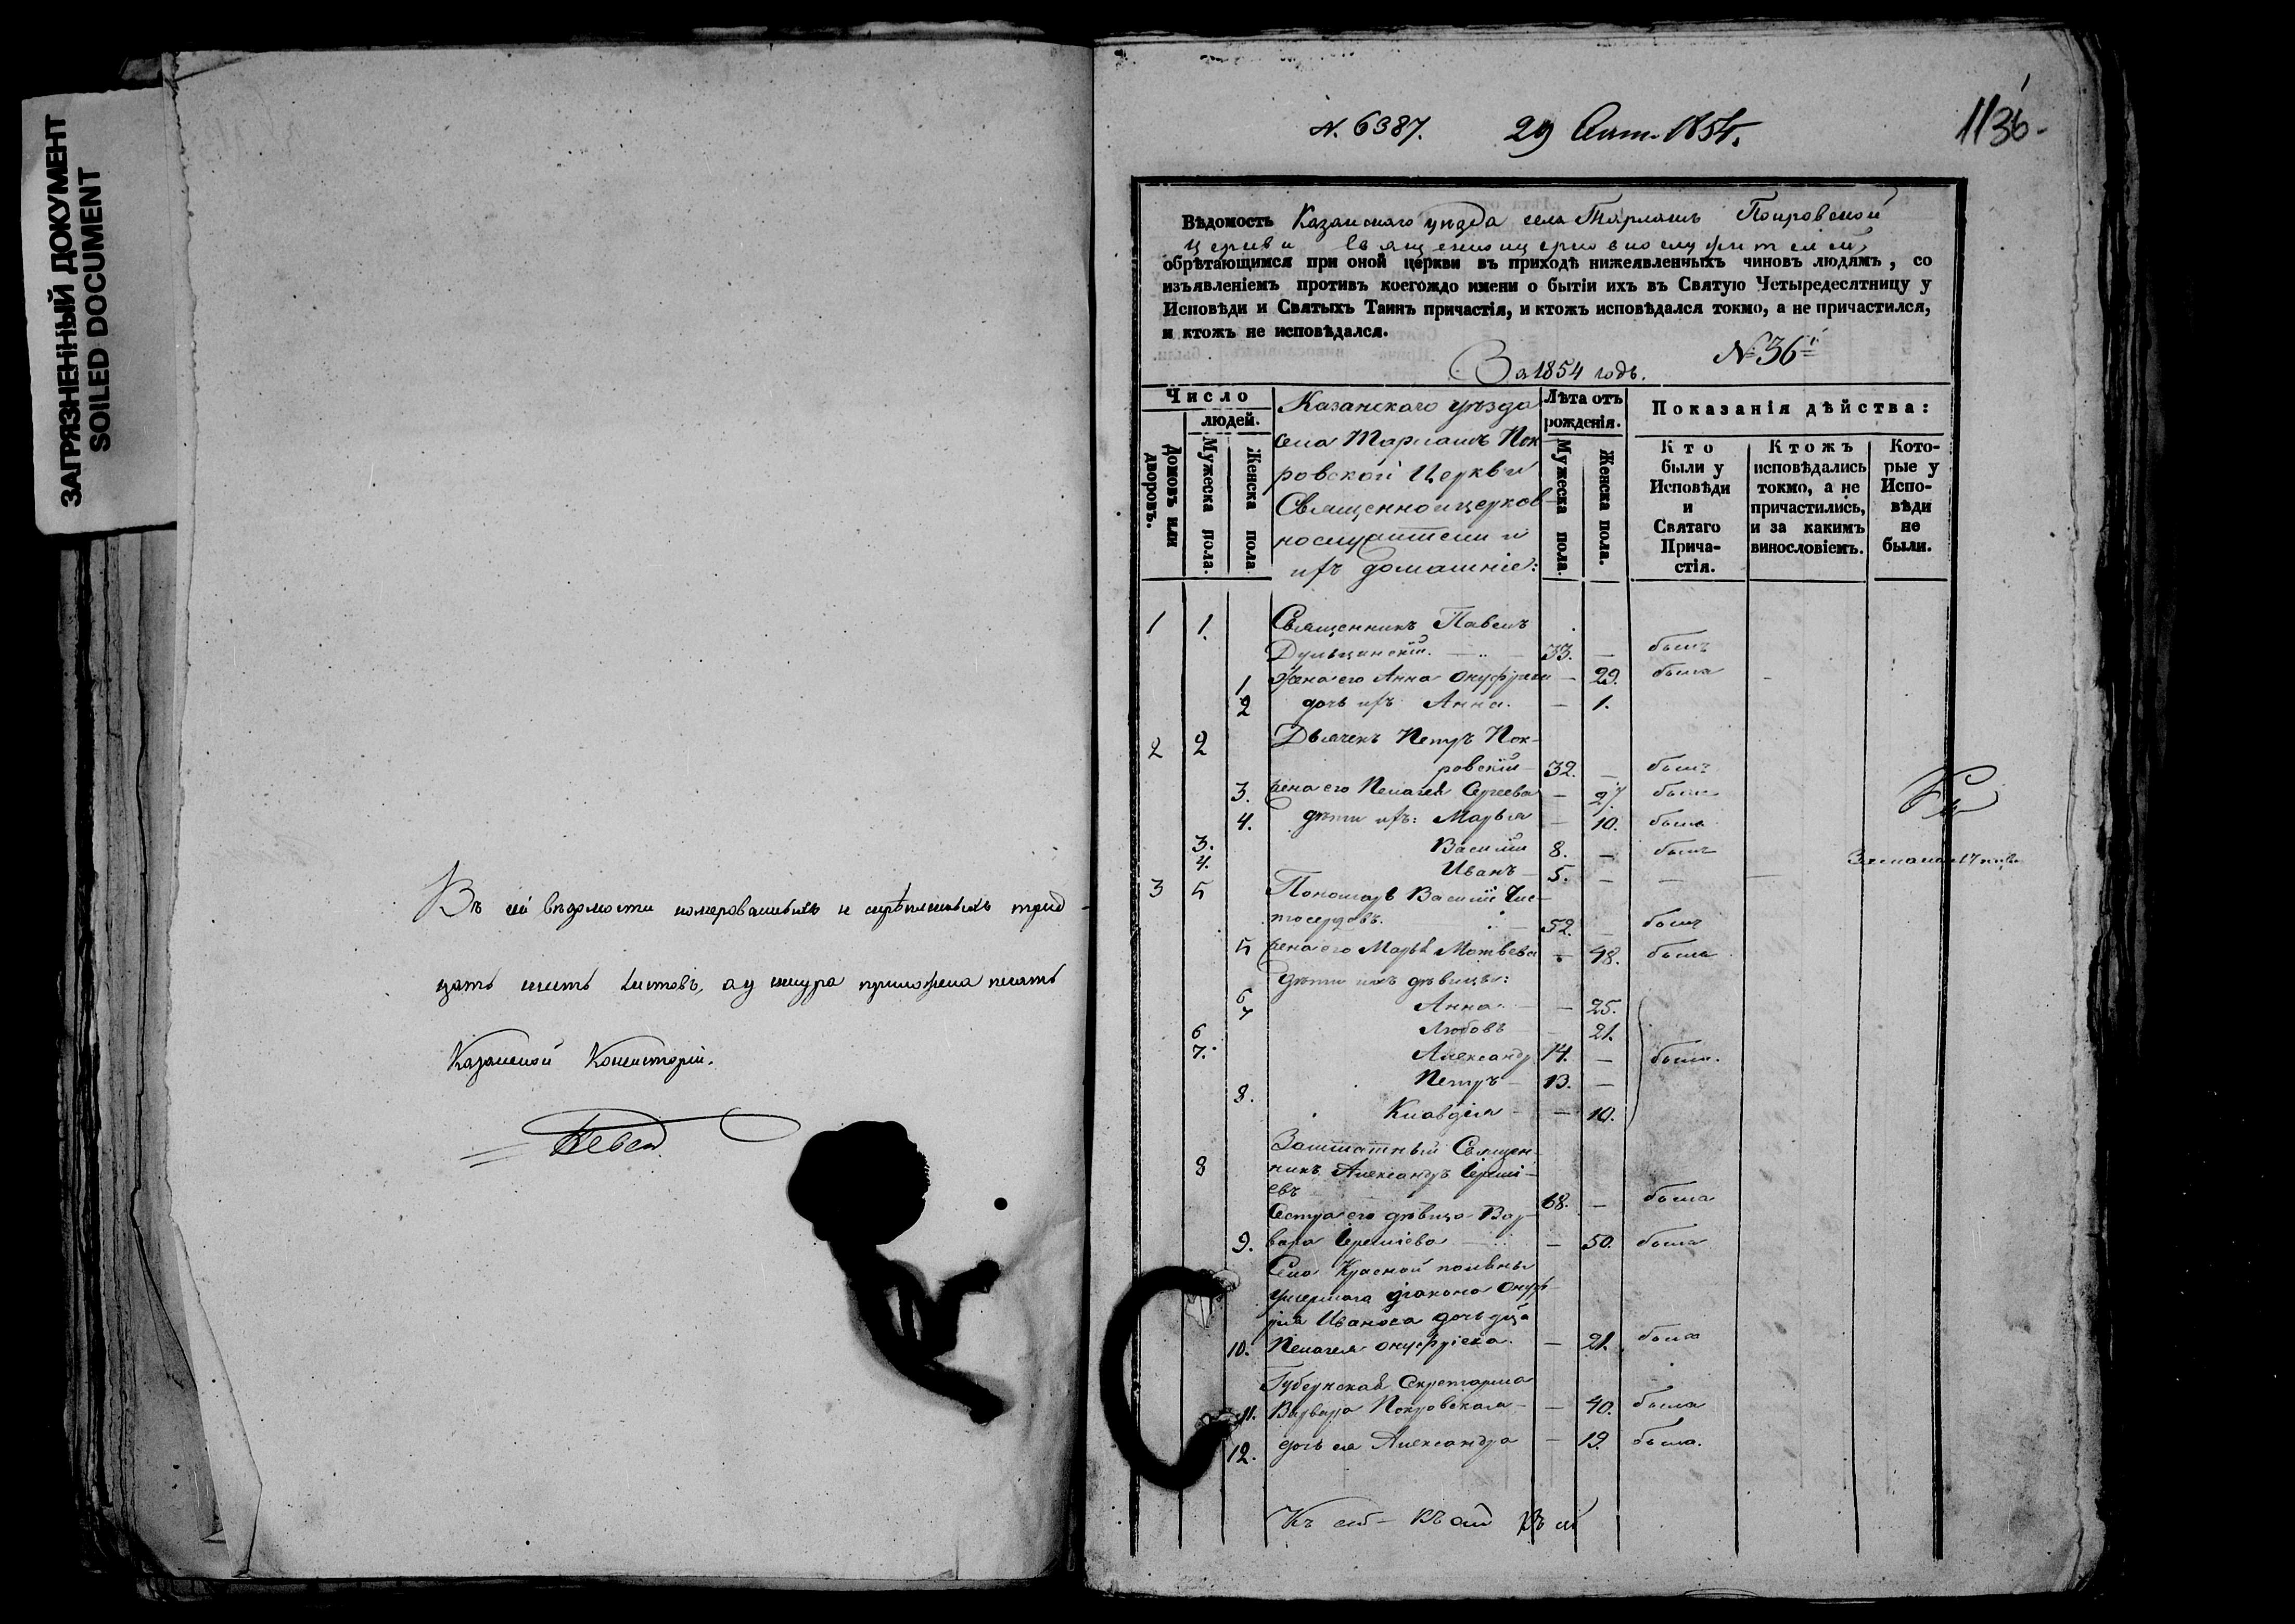 ЗАГРЯЗНЕННЫЙ ДОКУМЕНТ
SOILED DOCUMENT
Въ сей вѣдомости номерованныхъ и скрѣпленныхъ трид-
цать шесть листовъ, а у шнура приложена печать
Казанской Консисторіи.
N. 6387. 29 1854.
1136
Вѣдомость Казанскаго уѣзда села Тарлашъ Покровской
церкви священноцерковнослужителей,
обрѣтающимся при оной церкви въ приходѣ нижеявленныхъ чиновъ людямъ, со
изъявленіемъ противъ коегождо имени о бытіи ихъ въ Святую Четыредесятницу у
Исповѣди и Святыхъ Таинъ причастія, и ктожъ исповѣдался токмо, а не причастился,
и ктожъ не исповѣдался.
№ 36
За 1854 годъ.
Число
людей.
Домовъ или дворовъ.
Мужеска пола.
Женска пола
Казанскаго уѣзда
села Тарлашъ Пок-
ровской Церкви
Священноцерков-
нослужители и
ихъ домашніе:
Лѣта отъ рожденія.
Мужеска пола.
Женска пола.
Показанія дѣйства:
Кто были у Исповѣди и Святаго Прича-стія.
Ктожъ исповѣдались токмо, а не причастились, и за какимъ винословіемъ.
Кото-рые у Испо-вѣди не были.
1 1. Священникъ Павелъ
33. — былъ
1 Жена его Анна — 29. была
2 дочь ихъ Анна. — 1.
2 2 Дьячекъ Петръ Пок-
ровскій 32. — былъ
3. жена его Пелагея Сергеева — 27. была
4. дѣти ихъ: Марья — 10. была
3. Василій 8. — былъ
4. Иванъ 5. — —
3 5 Пономарь Василій Чис-
тосердовъ. 52. былъ
5 жена его Марья Матвѣева — 48. была
дѣти ихъ дѣвицы:
6 Анна — 25.
7 Любовь 21.
6 Александръ 14. —
7. Петръ 13. — были.
8. Клавдія — 10.
Заштатный Священ-
8 никъ Александръ
евъ 68. —
Сестра его дѣвица Вар-
9. вара — 50. была
Села Красной поляны
умершаго діакона Онуф-
рія Иванова дочь
10. Пелагея Онуфріева — 21. была
Губернская Секретарша
11. Варвара Покровская — 40. была
12. дочь ея Александра — 19. была.